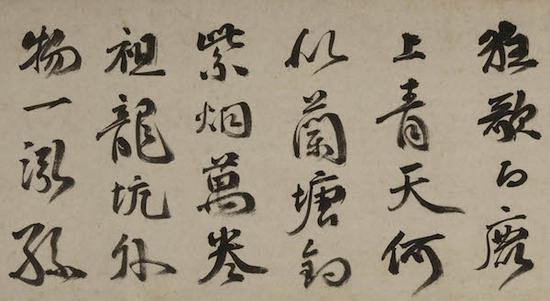 狂歌白鹿
上青天何
似蘭塘釣
紫烟萬卷
祖龍坑外
物一泓孫